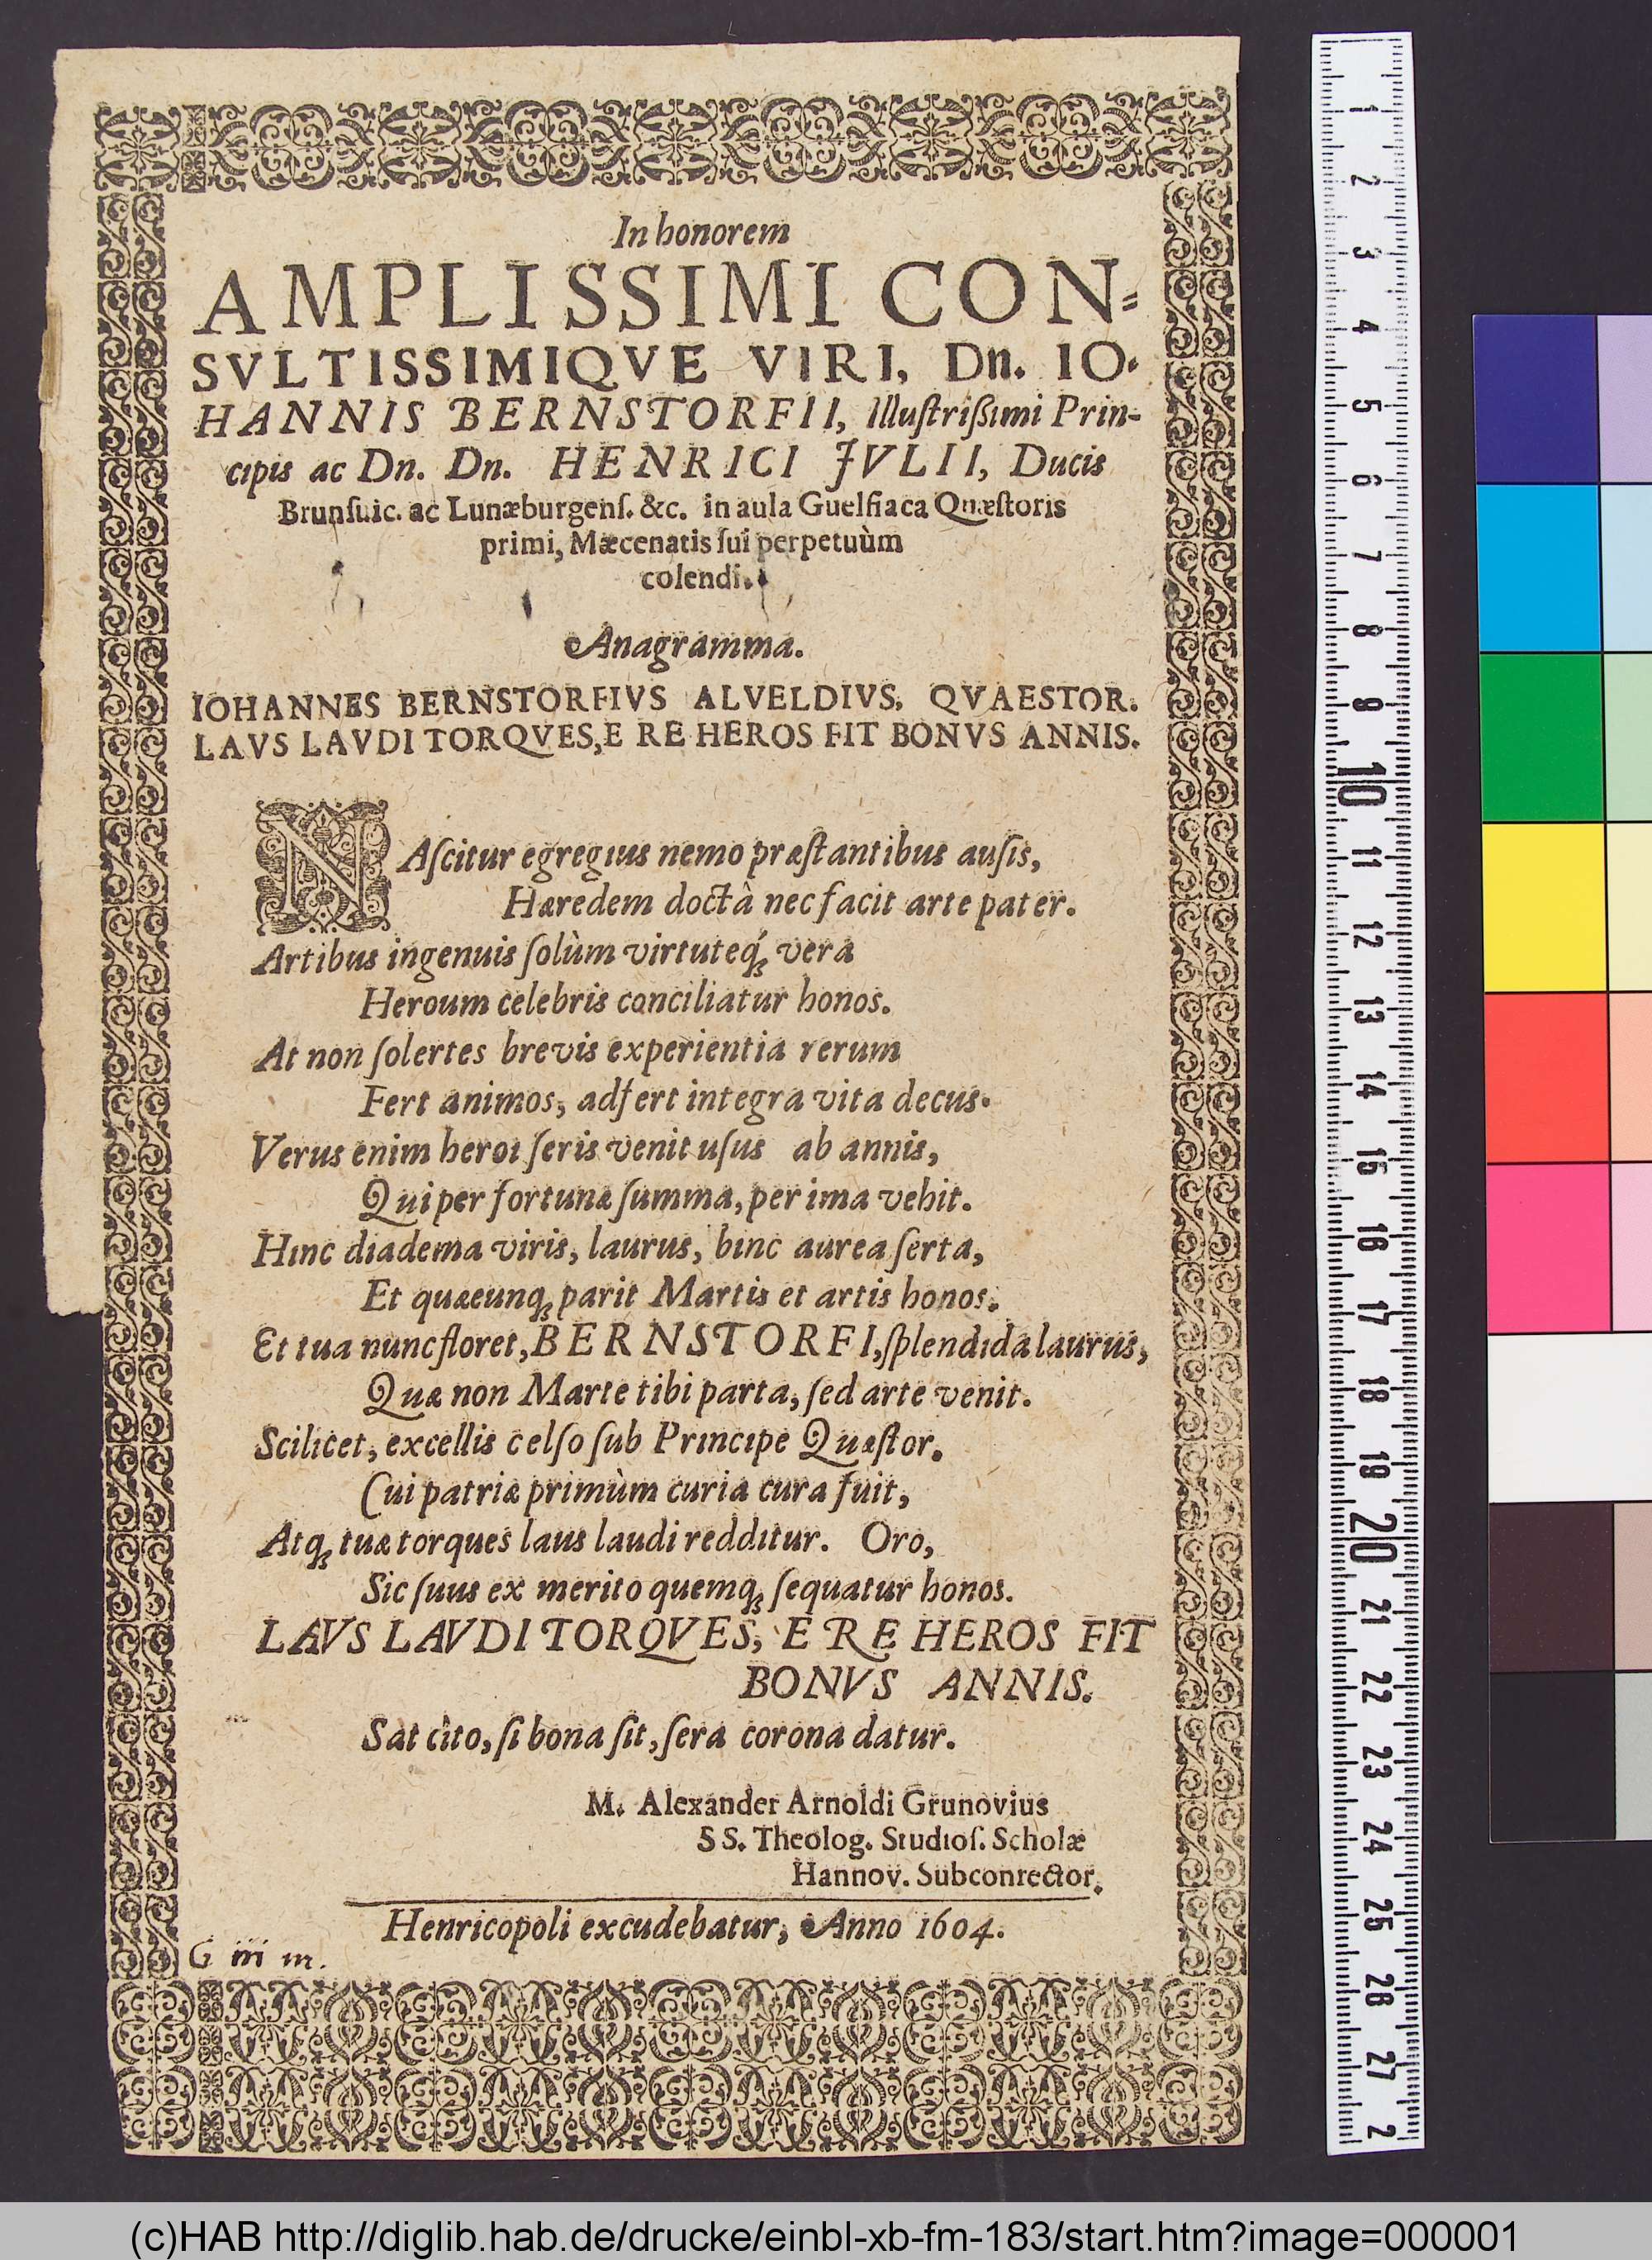 In honorem
AMPLISSIMI CON=
SVLTISSIMIQVE VIRI, Dn. IO-
HANNIS BERNSTORFII, Illuſtrißimi Prin-
cipis ac Dn. Dn. HENRICI JVLII, Ducis
Brunſuic. ac Lunæburgenſ. &c. in aula Guelfiaca Quæſtoris
primi, Mæcenatis ſui perpetuùm
colendi.
Anagramma.
IOHANNES BERNSTORFIVS ALVELDIVS. QVAESTOR.
LAVS LAVDI TORQVES, E RE HEROS FIT BONVS ANNIS.
NAſcitur egregius nemo præſtantibus auſis,
Hæredem doctâ nec facit arte pater.
Artibus ingenuis ſolùm virtuteq́ꝫ vera
Heroum celebris conciliatur honos.
At non ſolertes brevis experientia rerum
Fert animos, adfert integra vita decus.
Verus enim heroi ſeris venit uſus ab annis,
Qui per fortunæ ſumma, per ima vehit.
Hinc diadema viris, laurus, hinc aurea ſerta,
Et quæeunqꝫ parit Martis et artis honos.
Et tua nunc floret, BERNSTORFI, ſplendida laurus,
Quæ non Marte tibi parta, ſed arte venit.
Scilicet, excellis celſo ſub Principe Quæſtor.
Cui patriæ primùm curia cura fuit,
Atqꝫ tuæ torques laus laudi redditur. Oro,
Sic ſuus ex merito quemqꝫ ſequatur honos.
LAVS LAVDI TORQVES, E RE HEROS FIT
BONVS ANNIS.
Sat cito, ſi bona ſit, ſera corona datur.
M. Alexander Arnoldi Grunovius
SS. Theolog. Studioſ. Scholæ
Hannov. Subconrector.
Henricopoli excudebatur, Anno 1604.
G iii m.
1
2
3
4
5
6
7
8
9
10
11
12
13
14
15
16
17
18
19
20
21
22
23
24
25
26
27
2
(c)HAB http://diglib.hab.de/drucke/einbl-xb-fm-183/start.htm?image=000001